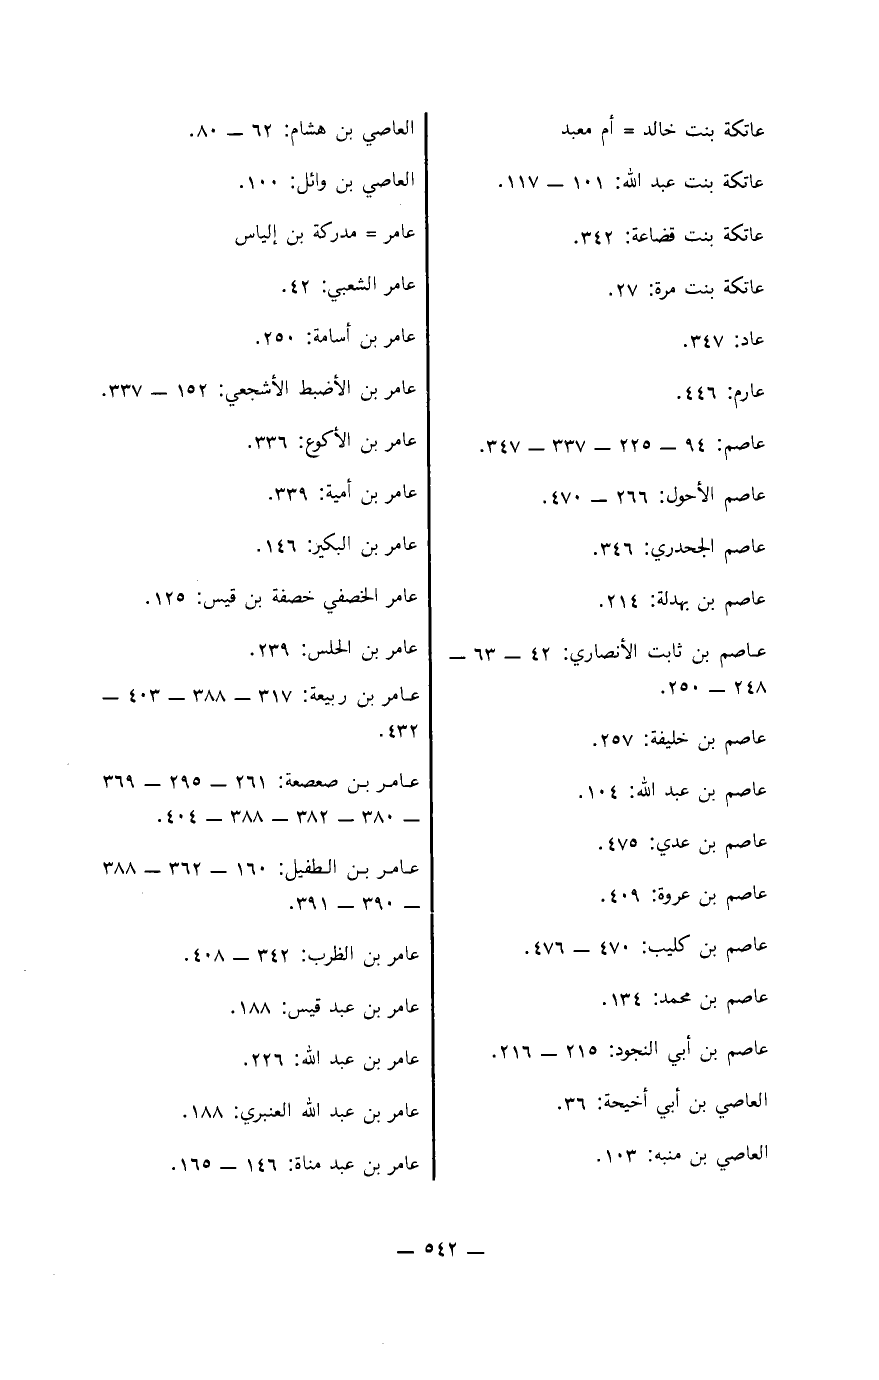 عاتكة بنت خالد = أم معبد
عاتكة بنت عبد الله: ١٠١ — ١١٧.
عاتكة بنت قضاعة: ٣٤٢.
عاتكة بنت مرة: ٢٧.
عاد: ٣٤٧.
عارم: ٤٤٦.
عاصم: ٩٤ — ٢٢٥ — ٣٣٧ — ٣٤٧.
عاصم الأحول: ٢٦٦ — ٤٧٠.
عاصم الجحدري: ٣٤٦.
عاصم بن بهدلة: ٢١٤.
عاصم بن ثابت الأنصاري: ٤٢ — ٦٣ —
٢٤٨ — ٢٥٠.
عاصم بن خليفة: ٢٥٧.
عاصم بن عبد الله: ١٠٤.
عاصم بن عدي: ٤٧٥.
عاصم بن عروة: ٤٠٩.
عاصم بن كليب: ٤٧٠ — ٤٧٦.
عاصم بن محمد: ١٣٤.
عاصم بن أبي النجود: ٢١٥ — ٢١٦.
العاصي بن أبي أخيحة: ٣٦.
العاصي بن منبه: ١٠٣.
العاصي بن هشام: ٦٢ — ٨٠.
العاصي بن وائل: ١٠٠.
عامر = مدركة بن إلياس
عامر الشعبي: ٤٢.
عامر بن أسامة: ٢٥٠.
عامر بن الأضبط الأشجعي: ١٥٢ — ٣٣٧.
عامر بن الأكوع: ٣٣٦.
عامر بن أمية: ٣٣٩.
عامر بن البكير: ١٤٦.
عامر الخصفي خصفة بن قيس: ١٢٥.
عامر بن الحلس: ٢٣٩.
عامر بن ربيعة: ٣١٧ — ٣٨٨ — ٤٠٣ —
٤٣٢.
عامر بن صعصعة: ٢٦١ — ٢٩٥ — ٣٦٩
— ٣٨٠ — ٣٨٢ — ٣٨٨ — ٤٠٤.
عامر بن الطفيل: ١٦٠ — ٣٦٢ — ٣٨٨
— ٣٩٠ — ٣٩١.
عامر بن الظرب: ٣٤٢ — ٤٠٨.
عامر بن عبد قيس: ١٨٨.
عامر بن عبد الله: ٢٢٦.
عامر بن عبد الله العنبري: ١٨٨.
عامر بن عبد مناة: ١٤٦ — ١٦٥.
— ٥٤٢ —